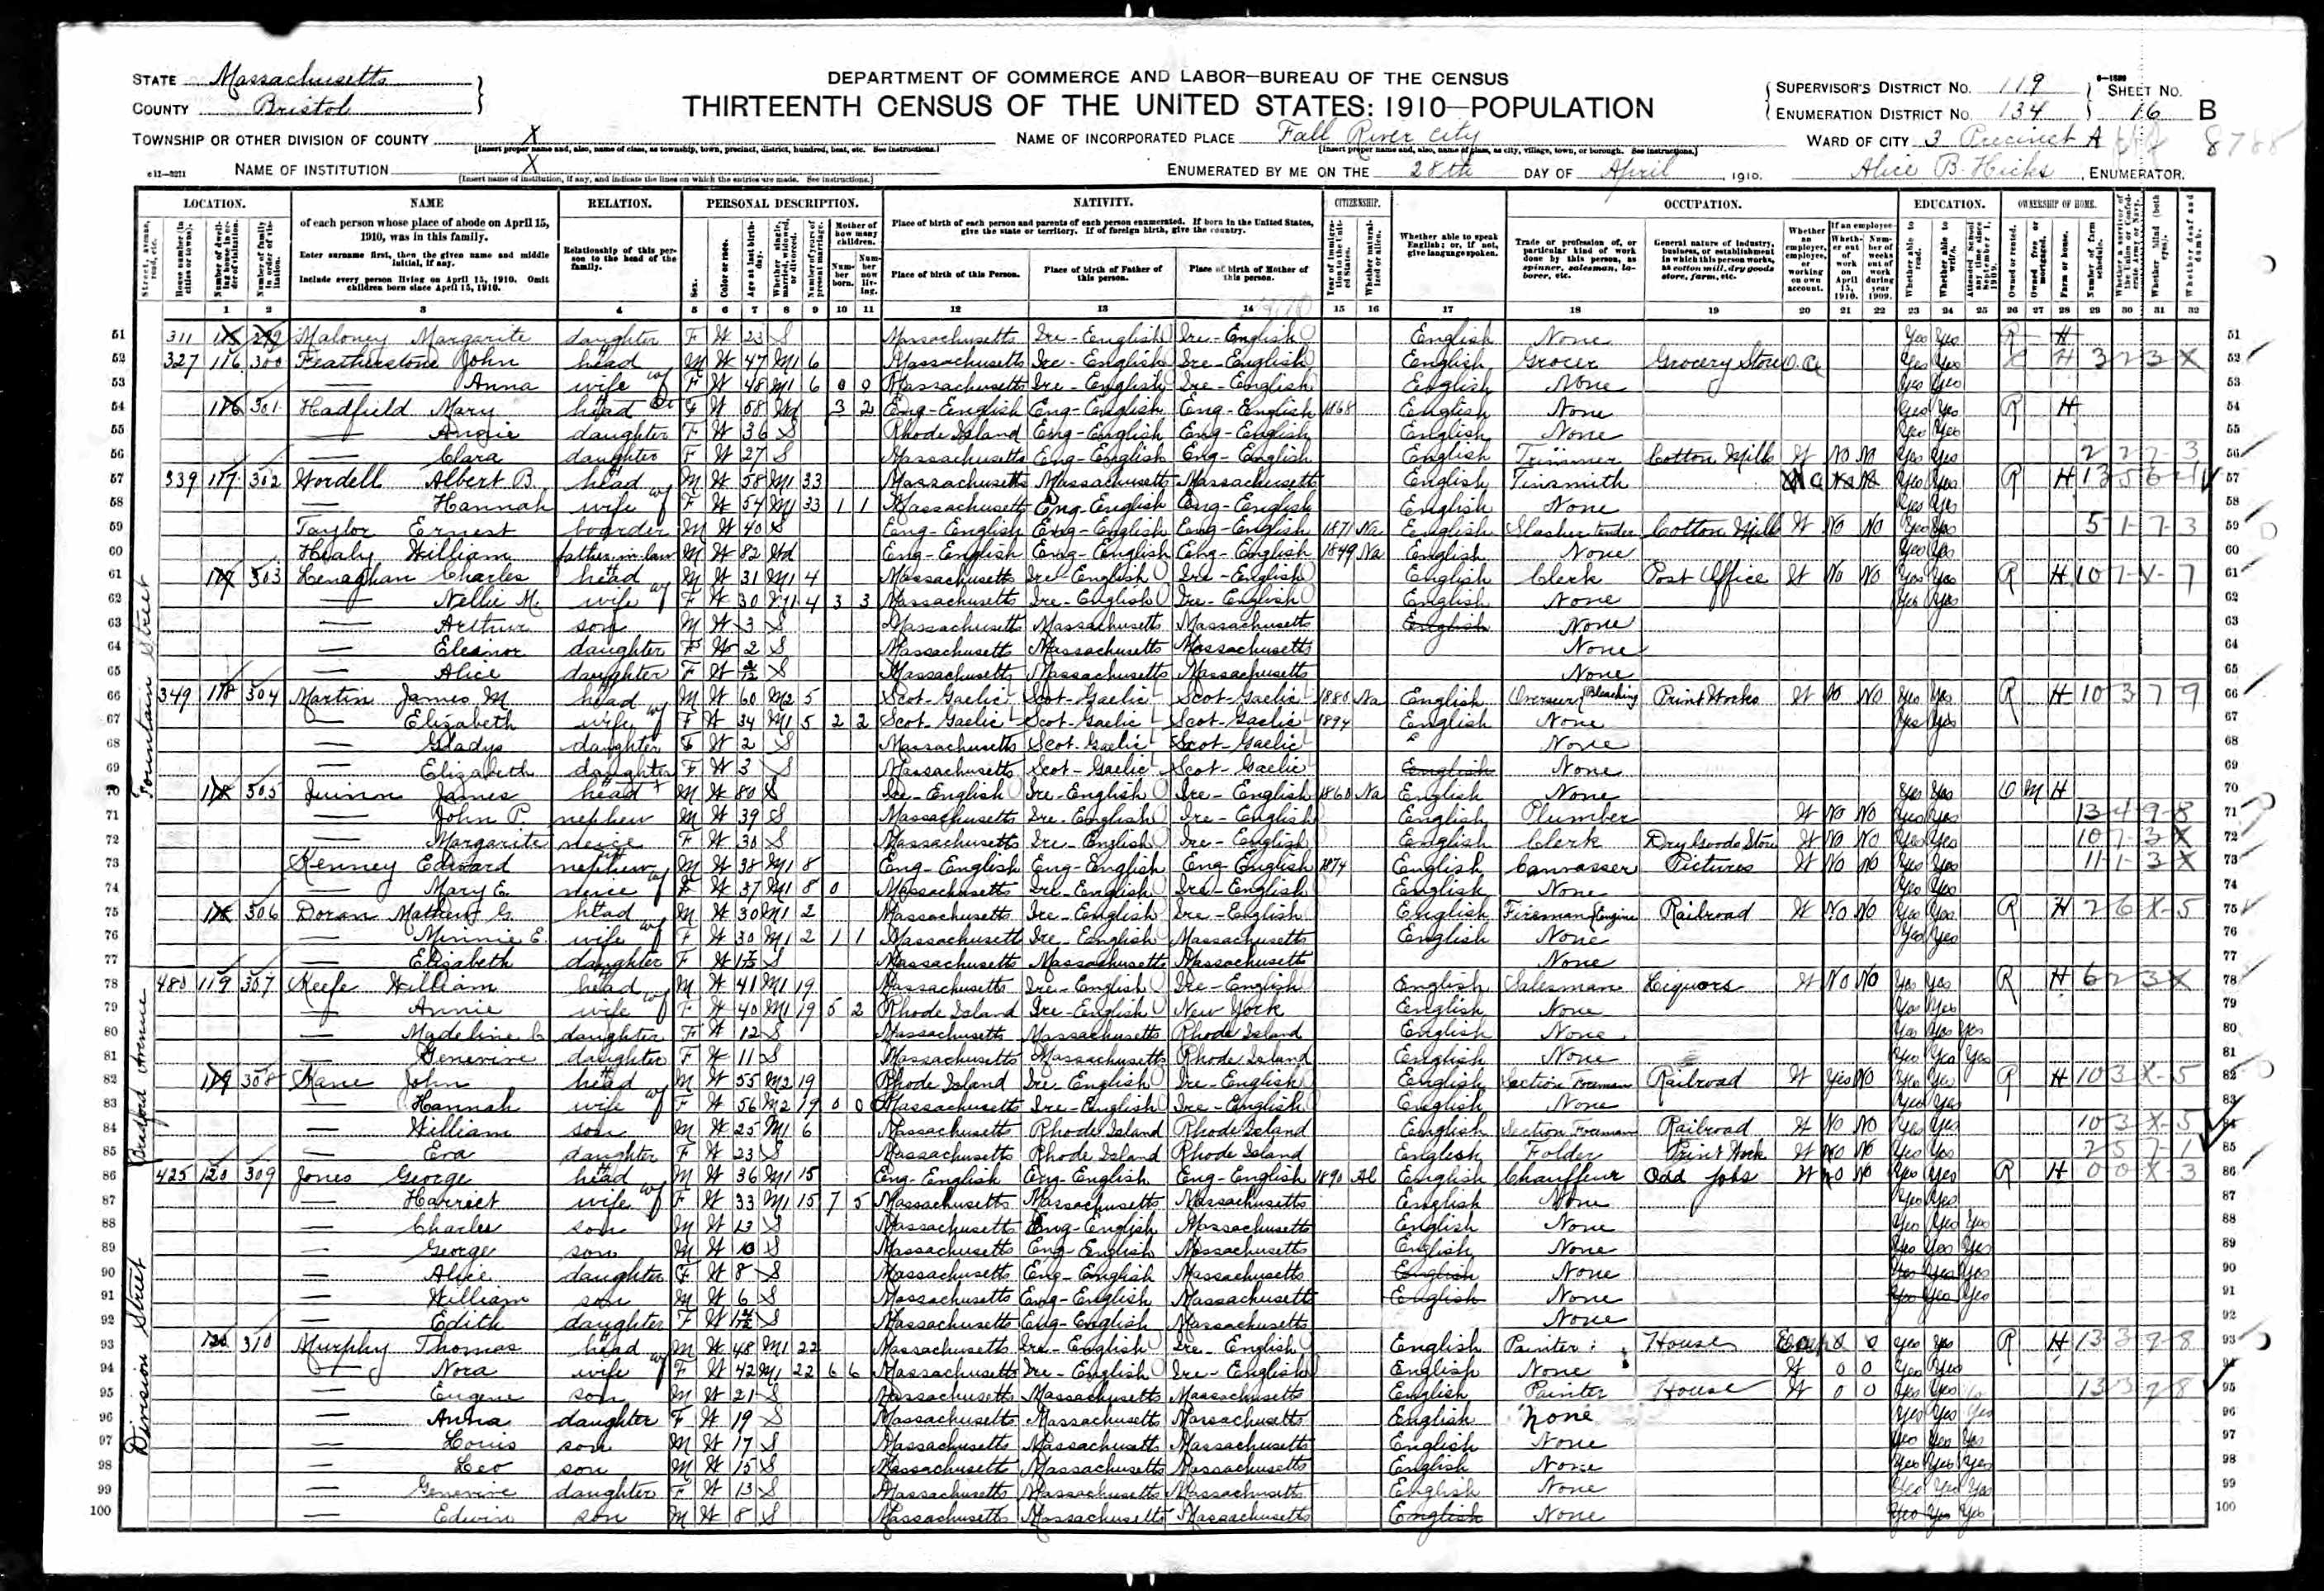 STATE Massachusetts
COUNTY Bristol
DEPARTMENT OF COMMERCE AND LABOR—BUREAU OF THE CENSUS
THIRTEENTH CENSUS OF THE UNITED STATES: 1910—POPULATION
SUPERVISOR'S DISTRICT NO. 119 SHEET NO.
ENUMERATION DISTRICT NO. 134 16 B
TOWNSHIP OR OTHER DIVISION OF COUNTY X
NAME OF INCORPORATED PLACE Fall River City
WARD OF CITY 3 Precinct A
NAME OF INSTITUTION X
ENUMERATED BY ME ON THE 28th DAY OF April, 1910. Alice B. Hicks, ENUMERATOR.
LOCATION. NAME RELATION. PERSONAL DESCRIPTION. NATIVITY. CITIZENSHIP. OCCUPATION. EDUCATION. OWNERSHIP OF HOME.
of each person whose place of abode on April 15, 1910, was in this family.
Enter surname first, then the given name and middle initial, if any.
Include every person living on April 15, 1910. Omit children born since April 15, 1910.
Relationship of this person to the head of the family.
Place of birth of each person and parents of each person enumerated. If born in the United States, give the state or territory. If of foreign birth, give the country.
Place of birth of this Person. Place of birth of Father of this person. Place of birth of Mother of this person.
Whether able to speak English; or, if not, give language spoken.
Trade or profession of, or particular kind of work done by this person, as spinner, salesman, laborer, etc.
General nature of industry, business, or establishment in which this person works, as cotton mill, dry goods store, farm, etc.
1 2 3 4 5 6 7 8 9 10 11 12 13 14 15 16 17 18 19 20 21 22 23 24 25 26 27 28 29 30 31 32
Fountain Street
51 311 Maloney Margarite daughter F W 23 S Massachusetts Ire-English Ire-English English None Yes Yes
52 327 116 300 Featherstone John head M W 47 M1 6 Massachusetts Ire-English Ire-English English Grocer Grocery Store Yes Yes
53 Anna wife F W 48 M1 6 0 0 Massachusetts Ire-English Ire-English English None Yes Yes
54 116 301 Hadfield Mary head F W 58 Wd 3 2 Eng-English Eng-English Eng-English 1868 English None Yes Yes R H
55 Annie daughter F W 36 S Rhode Island Eng-English Eng-English English None Yes Yes
56 Clara daughter F W 27 S Massachusetts Eng-English Eng-English English Trimmer Cotton Mills W No No Yes Yes
57 339 117 302 Wordell Albert B. head M W 58 M1 33 Massachusetts Massachusetts Massachusetts English Tinsmith Yes Yes R H
58 Hannah wife F W 54 M1 33 1 1 Massachusetts Eng-English Eng-English English None Yes Yes
59 Taylor Ernest boarder M W 40 S Eng-English Eng-English Eng-English 1871 Na English Slasher tender Cotton Mill W No No Yes Yes
60 Healy William father-in-law M W 82 Wd Eng-English Eng-English Eng-English 1849 Na English None Yes Yes
61 117 303 Henaghan Charles head M W 31 M1 4 Massachusetts Ire-English Ire-English English Clerk Post Office W No No Yes Yes R H
62 Nellie M. wife F W 30 M1 4 3 3 Massachusetts Ire-English Ire-English English None Yes Yes
63 Arthur son M W 3 S Massachusetts Massachusetts Massachusetts English None
64 Eleanor daughter F W 2 S Massachusetts Massachusetts Massachusetts None
65 Alice daughter F W S Massachusetts Massachusetts Massachusetts None
66 349 118 304 Martin James M head M W 60 M2 5 Scot-Gaelic Scot-Gaelic Scot-Gaelic 1880 Na English Overseer Bleaching Print Works W No No Yes Yes R H
67 Elizabeth wife F W 34 M1 5 2 2 Scot-Gaelic Scot-Gaelic Scot-Gaelic 1894 English None Yes Yes
68 Gladys daughter F W 2 S Massachusetts Scot-Gaelic Scot-Gaelic None
69 Elizabeth daughter F W 3 S Massachusetts Scot-Gaelic Scot-Gaelic English None
70 118 305 Quinn James head M W 80 S Ire-English Ire-English Ire-English 1860 Na English None Yes Yes O M H
71 John P. nephew M W 39 S Massachusetts Ire-English Ire-English English Plumber W No No Yes Yes
72 Margarite neice F W 30 S Massachusetts Ire-English Ire-English English Clerk Dry Goods Store W No No Yes Yes
73 Kenney Edward nephew M W 38 M1 8 Eng-English Eng-English Eng-English 1874 English Canvasser Pictures W No No Yes Yes
74 Mary E. neice F W 37 M1 8 0 Massachusetts Ire-English Ire-English English None Yes Yes
75 118 306 Doran Mathew G. head M W 30 M1 2 Massachusetts Ire-English Ire-English English Fireman Engine Railroad W No No Yes Yes R H
76 Minnie E. wife F W 30 M1 2 1 1 Massachusetts Ire-English Massachusetts English None Yes Yes
77 Elizabeth daughter F W S Massachusetts Massachusetts Massachusetts None
Bradford Avenue
78 480 119 307 Keefe William head M W 41 M1 19 Massachusetts Ire-English Ire-English English Salesman Liquors W No No Yes Yes R H
79 Annie wife F W 40 M1 19 5 2 Rhode Island Ire-English New York English None Yes Yes
80 Madeline C daughter F W 12 S Massachusetts Massachusetts Rhode Island English None Yes Yes Yes
81 Genevive daughter F W 11 S Massachusetts Massachusetts Rhode Island English None Yes Yes Yes
82 119 308 Kane John head M W 55 M2 19 Rhode Island Ire English Ire-English English Section Foreman Railroad W Yes No Yes Yes R H
83 Hannah wife F W 56 M2 19 0 0 Massachusetts Ire-English Ire-English English None Yes Yes
84 William son M W 25 M1 6 Massachusetts Rhode Island Rhode Island English Section Foreman Railroad W No No Yes Yes
85 Eva daughter F W 23 S Massachusetts Rhode Island Rhode Island English Folder Print Work W No No Yes Yes
Division Street
86 425 120 309 Jones George head M W 36 M1 15 Eng-English Eng-English Eng-English 1890 Al English Chauffeur Odd Jobs W No No Yes Yes R H
87 Harriet wife F W 33 M1 15 7 5 Massachusetts Massachusetts Massachusetts English None Yes Yes
88 Charles son M W 13 S Massachusetts Eng-English Massachusetts English None Yes Yes Yes
89 George son M W 10 S Massachusetts Eng-English Massachusetts English None Yes Yes Yes
90 Alice daughter F W 8 S Massachusetts Eng-English Massachusetts English None Yes Yes Yes
91 William son M W 6 S Massachusetts Eng-English Massachusetts English None Yes Yes Yes
92 Edith daughter F W S Massachusetts Eng-English Massachusetts None
93 120 310 Murphy Thomas head M W 48 M1 22 Massachusetts Ire-English Ire-English English Painter House 0 Yes Yes R H
94 Nora wife F W 42 M1 22 6 6 Massachusetts Ire-English Ire-English English None W 0 0 Yes Yes
95 Eugene son M W 21 S Massachusetts Massachusetts Massachusetts English Painter House W 0 0 Yes Yes
96 Anna daughter F W 19 S Massachusetts Massachusetts Massachusetts English None Yes Yes Yes
97 Louis son M W 17 S Massachusetts Massachusetts Massachusetts English None Yes Yes Yes
98 Leo son M W 15 S Massachusetts Massachusetts Massachusetts English None Yes Yes Yes
99 Genevive daughter F W 13 S Massachusetts Massachusetts Massachusetts English None Yes Yes Yes
100 Edwin son M W 8 S Massachusetts Massachusetts Massachusetts English None Yes Yes Yes